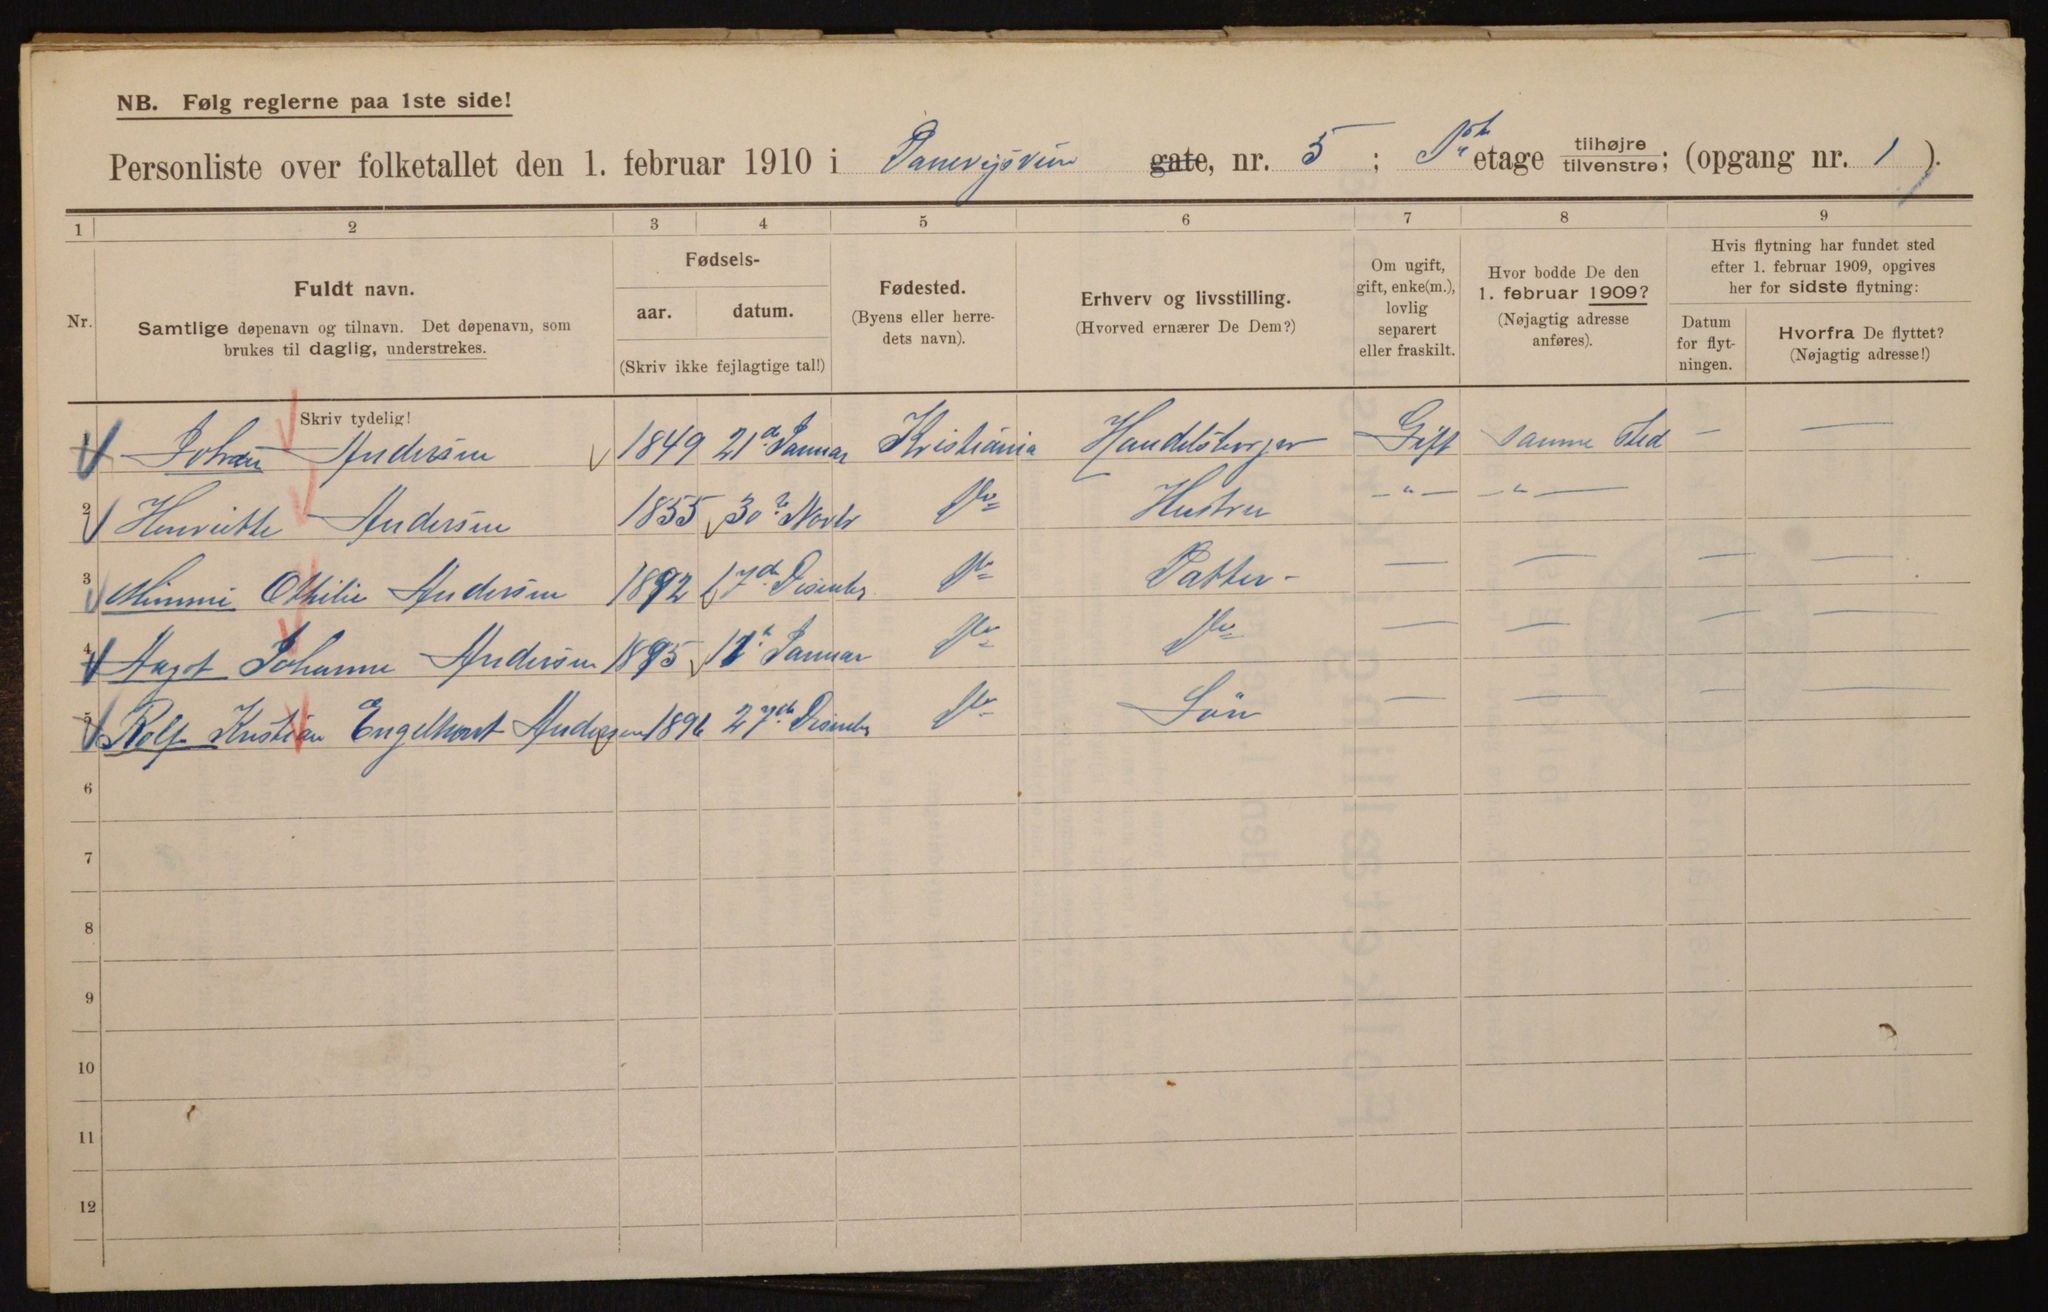 NB. Følg reglerne paa 1ste side!
Personliste over folketallet den 1. februar 1910 i Danevigsvein gate, nr. 5 ; etage tilhøjre tilvenstre; (opgang nr. 1 ).
1 2 3 4 5 6 7 8 9
Nr.
Fuldt navn.
Samtlige døpenavn og tilnavn. Det døpenavn, som
brukes til daglig, understrekes.
Skriv tydelig!
Fødsels-
aar. datum.
(Skriv ikke fejlagtige tal!)
Fødested.
(Byens eller herre-
dets navn).
Erhverv og livsstilling.
(Hvorved ernærer De Dem?)
Om ugift,
gift, enke(m.),
lovlig
separert
eller fraskilt.
Hvor bodde De den
1. februar 1909?
(Nøjagtig adresse
anføres).
Hvis flytning har fundet sted
efter 1. februar 1909, opgives
her for sidste flytning:
Datum
for flyt-
ningen.
Hvorfra De flyttet?
(Nøjagtig adresse!)
Johan Andersen 1849 21de Januar Kristiania Handelsborger Gift samme Sted — —
2 Henriette Andersen 1855 30te Novbr Do Hustru — " — — " —
3 Mimmi Othilie Andersen 1892 17de Desember Do Datter - — — — —
4 Aagot Johanne Andersen 1895 11te Januar Do Do — — — —
5 Rolf Kristian Engelhart Andersen 1896 27de Desember Do Søn — — — —
6
7
8
9
10
11
12